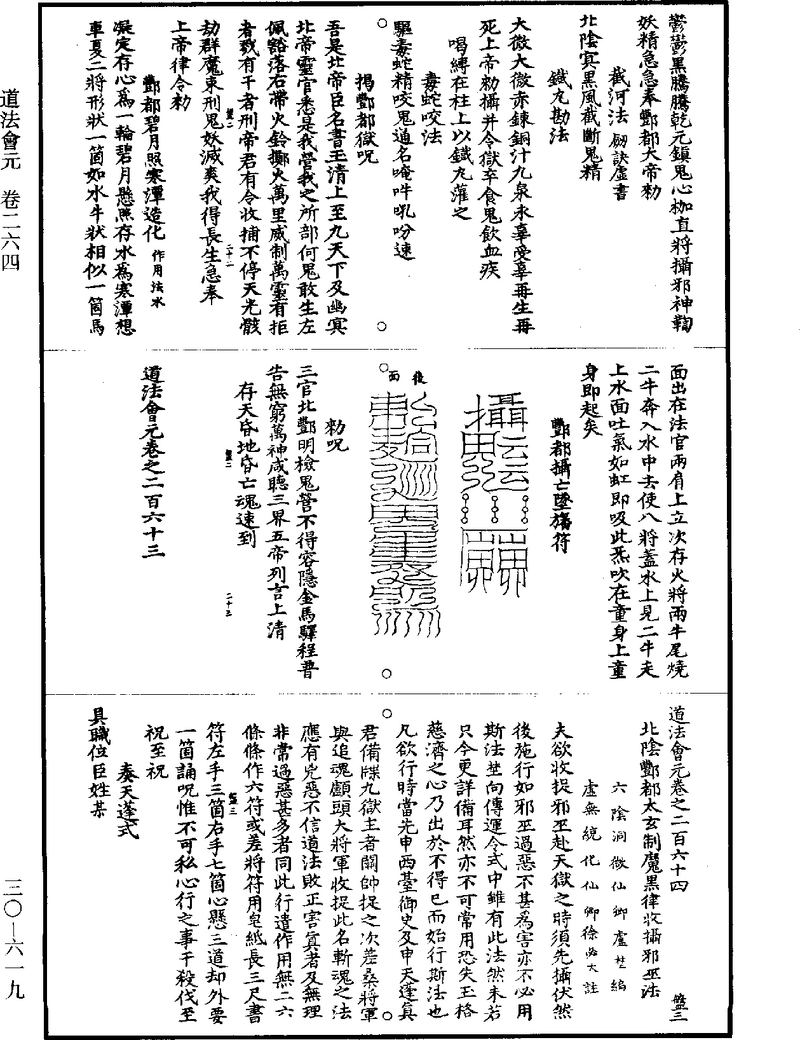 道法會元　卷二六四
三〇—六一九
鬱鬱黑騰騰乾元鎮鬼心枷直將攝邪神鞫
妖精急急奉酆都大帝勑
截河法　劒訣虛書
北陰㝠黑風截斷鬼精
鐵丸勘法
大微大微赤鍊銅汁九泉永辜受辜再生再
死上帝勑攝并令獄卒食鬼飲血疾
喝縛在柱上以鐵丸灌之
毒蛇咬法
驅毒蛇精咬鬼通名唵吽吼吩速
揭酆都獄呪
吾是北帝臣名書玉清上至九天下及幽㝠
北帝靈官悉是我營我之所部何鬼敢生左
佩豁落右帶火鈴擲火萬里威制萬靈有拒
者戟有干者刑帝君有令收捕不停天光骸
劫群魔束刑鬼妖滅爽我得長生急奉
上帝律令勑
酆都碧月照寒潭造化　作用法水
凝定存心爲一輪碧月懸照存水爲寒潭想
車夏二將形狀一箇如水牛狀相似一箇馬
面出在法官兩肩上立次存火將兩牛尾燒
二牛奔入水中去使八將蓋水上見二牛走
上水面吐氣如虹即吸此炁吹在童身上童
身即起矣
酆都攝亡墜旛符
後
面
勑呪
三官北酆明檢鬼營不得容隱金馬驛程普
告無窮萬神咸聽三界五帝列言上清
存天昏地昏亡魂速到
道法會元卷之二百六十三
道法會元卷之二百六十四
北陰酆都太玄制魔黑律收攝邪巫法
六陰洞微仙卿盧埜編
虛無統化仙卿徐必大註
夫欲收捉邪巫赴天獄之時須先攝伏然
後施行如邪巫過惡不甚爲害亦不必用
斯法埜向傳運令式中雖有此法然未若
只今更詳備耳然亦不可常用恐失玉格
慈濟之心乃出於不得已而始行斯法也
凡欲行時當先申西臺御史及申天蓬眞
君備牒九獄主者關帥捉之次差桑將軍
與追魂顱頭大將軍收捉此名斬魂之法
應有兇惡不信道法敗正害眞者及無理
非常過惡甚多者同此行遣作用無二六
條條作六符或差將符用皂紙長三尺書
符左手三箇右手七箇心懸三道却外要
一箇誦呪惟不可私心行之事干殺伐至
祝至祝
奏天蓬式
具職位臣姓某